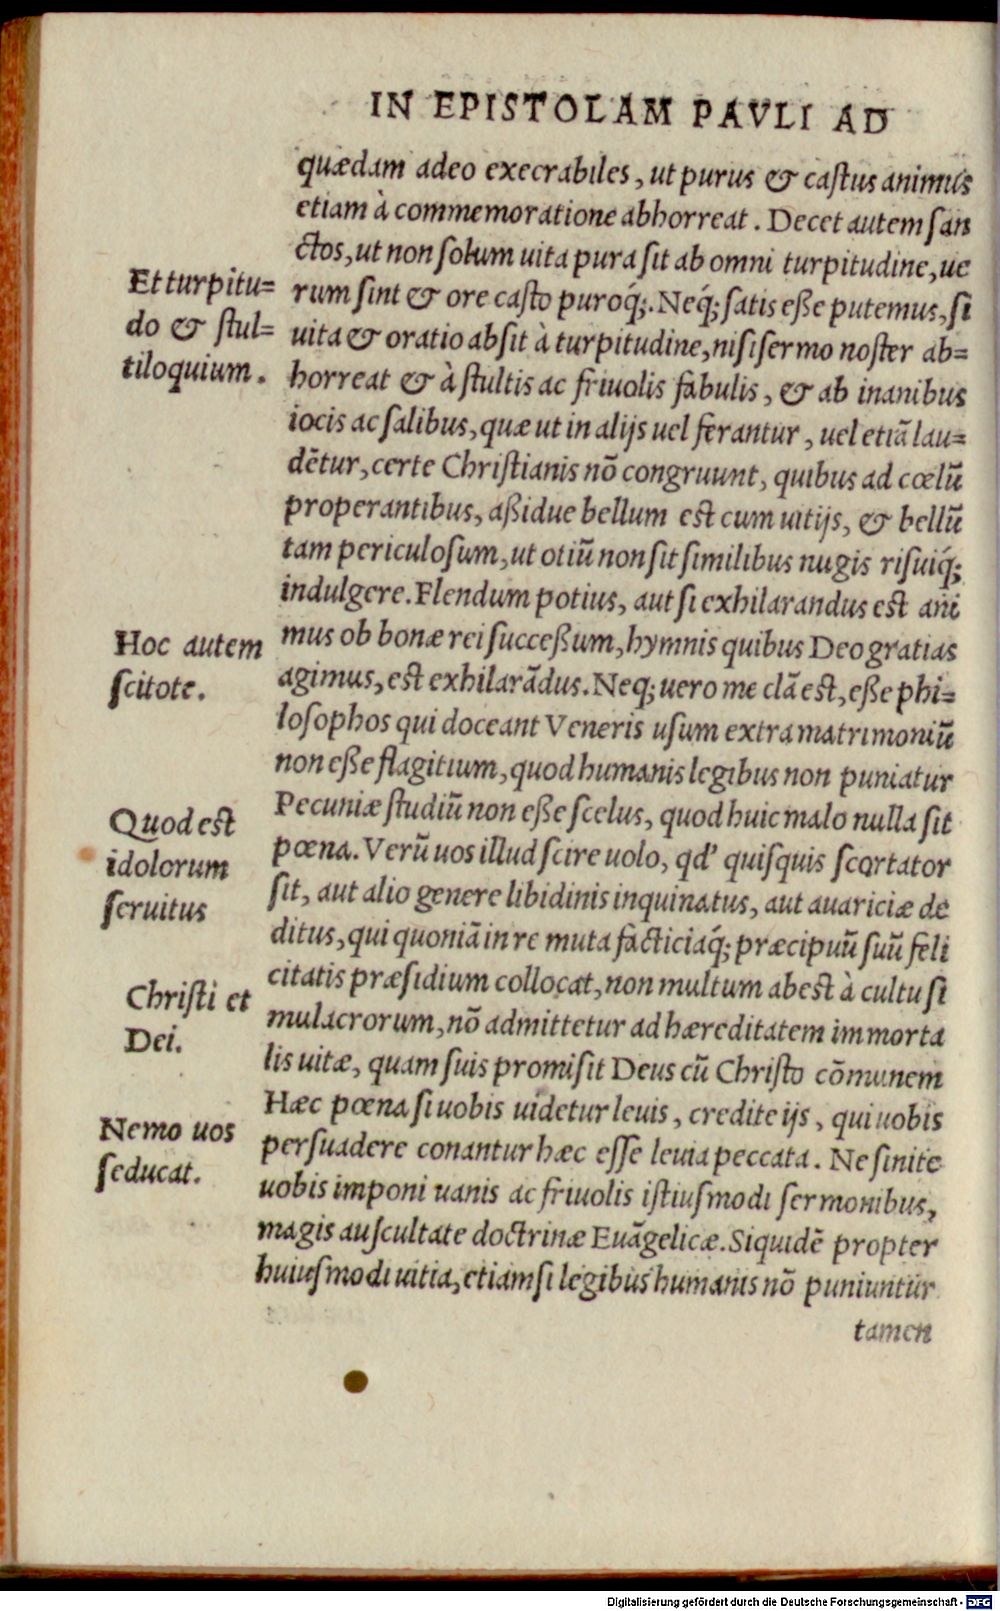 IN EPISTOLAM PAVLI AD
quædam adeo execrabiles, ut purus & castus animus
etiam à commemoratione abhorreat. Decet autem san
ctos, ut non solum uita pura sit ab omni turpitudine, ue
rum sint & ore casto puroq́;. Neq́; satis eße putemus, si
uita & oratio absit à turpitudine, nisi sermo noster ab=
horreat & à stultis ac friuolis fabulis, & ab inanibus
iocis ac salibus, quæ ut in alijs uel ferantur, uel etiã lau=
dẽtur, certe Christianis nõ congruunt, quibus ad cœlũ
properantibus, aßidue bellum est cum uitijs, & bellũ
tam periculosum, ut otiũ non sit similibus nugis risuiq́;
indulgere. Flendum potius, aut si exhilarandus est ani
mus ob bonæ rei succeßum, hymnis quibus Deo gratias
agimus, est exhilarãdus. Neq; uero me clã est, eße phi=
losophos qui doceant Veneris usum extra matrimoniũ
non eße flagitium, quod humanis legibus non puniatur
Pecuniæ studiũ non eße scelus, quod huic malo nulla sit
pœna. Verũ uos illud scire uolo, qd' quisquis scortator
sit, aut alio genere libidinis inquinatus, aut auariciæ de
ditus, qui quoniã in re muta facticiaq́; præcipuũ suũ feli
citatis præsidium collocat, non multum abest à cultu si
mulacrorum, nõ admittetur ad hæreditatem immorta
lis uitæ, quam suis promisit Deus cũ Christo cõmunem
Hæc pœna si uobis uidetur leuis, credite ijs, qui uobis
persuadere conantur hæc esse leuia peccata. Ne sinite
uobis imponi uanis ac friuolis istiusmodi sermonibus,
magis auscultate doctrinæ Euãgelicæ. Siquidẽ propter
huiusmodi uitia, etiamsi legibus humanis nõ puniuntur
tamen
Et turpitu=
do & stul=
tiloquium.
Hoc autem
scitote.
Quod est
idolorum
seruitus
Christi et
Dei.
Nemo uos
seducat.
Digitalisierung gefördert durch die Deutsche Forschungsgemeinschaft - DFG